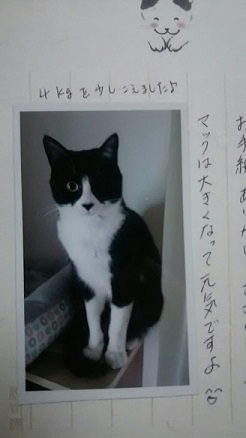 4kgを少しこえましたよ
お手紙ありがとう
マックは大きくなって元気ですよ